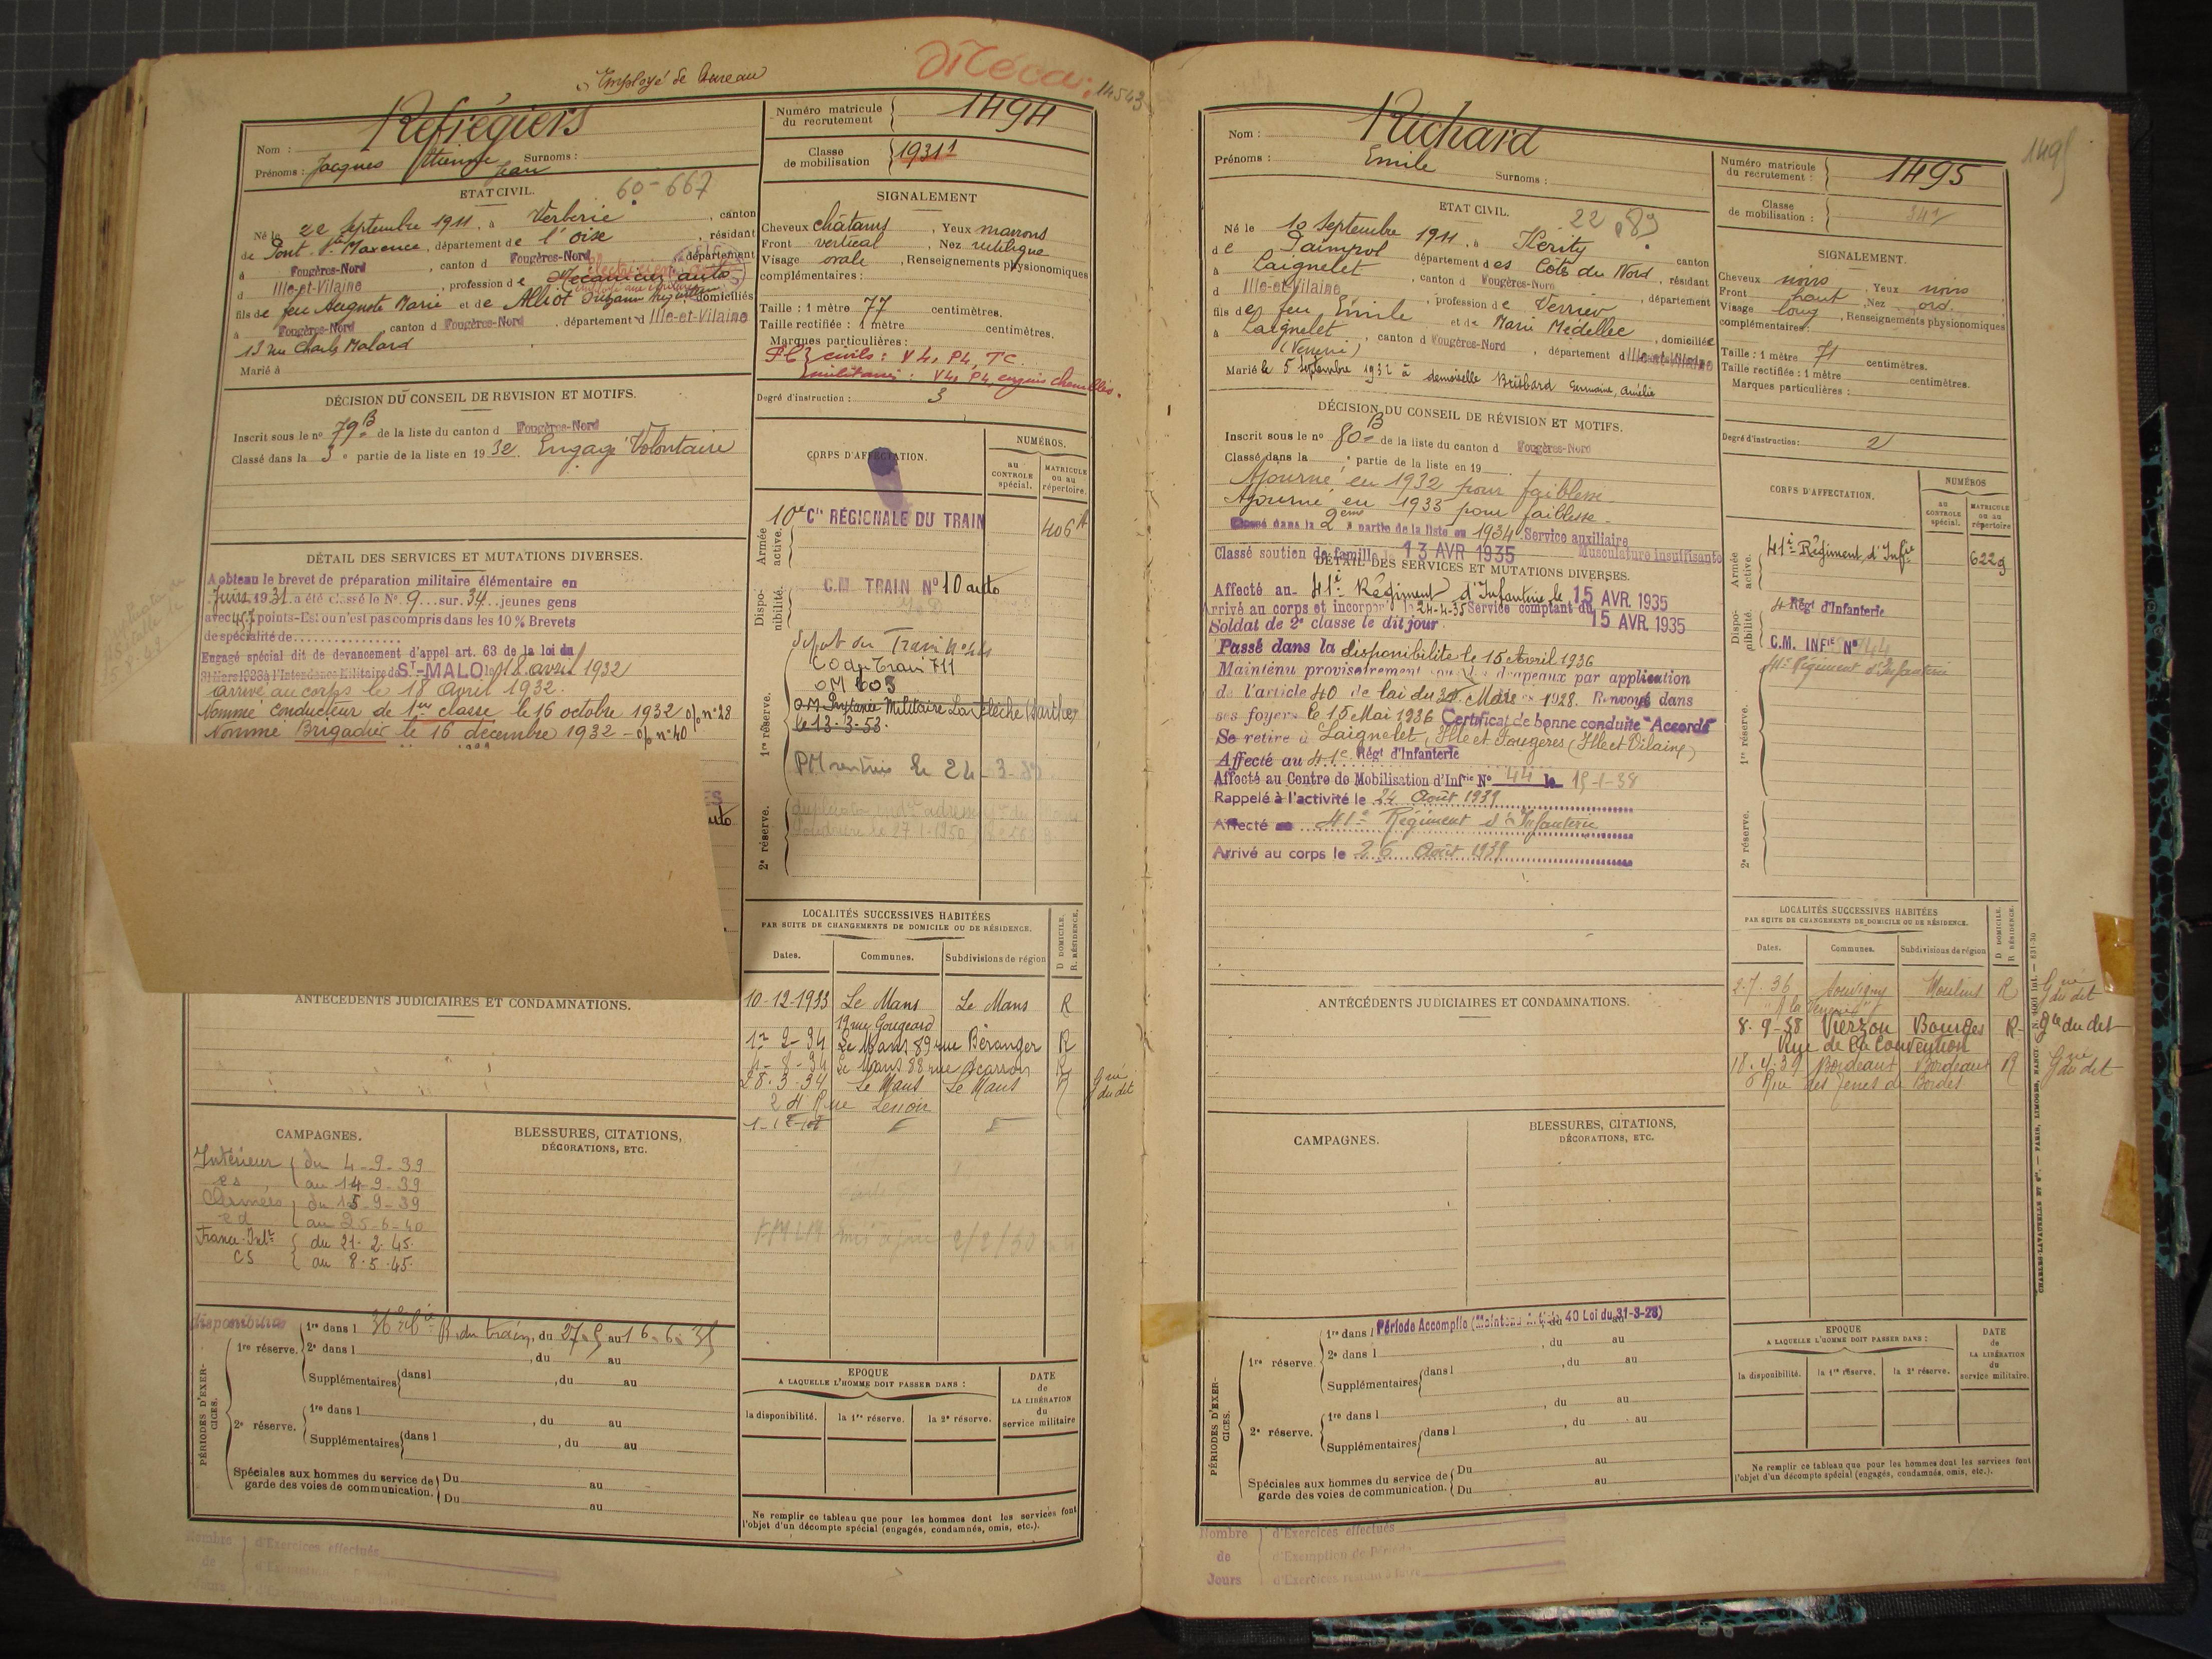 Employé de bureau
14543
Nom : Refrégiers
Prénoms : Jacques Etienne Jean Surnoms :
Numéro matricule du recrutement 1494
Classe de mobilisation 1931
ETAT CIVIL.
60-667
Né le 22 Septembre 1911, à Verberie, canton
de Pont Ste Maxence, département de l'Oise, résidant
à Fougères-Nord, canton d Fougères-Nord, département
d Ille-et-Vilaine, profession de Mécanicien auto
fils de feu Auguste Marie et de Alliot Suzanne domiciliés
à Fougères-Nord, canton d Fougères-Nord, département d Ille-et-Vilaine
13 rue Charles Malard
Marié à
SIGNALEMENT
Cheveux châtains, Yeux marrons
Front vertical, Nez rectiligne
Visage ovale, Renseignements physionomiques
complémentaires :
Taille : 1 mètre 77 centimètres.
Taille rectifiée : 1 mètre centimètres.
Marques particulières :
civils : V4, P4, TC.
militaires : V4, P4, engins chenillés.
Degré d'instruction : 3
DÉCISION DU CONSEIL DE REVISION ET MOTIFS.
Inscrit sous le nº 79B de la liste du canton d Fougères-Nord
Classé dans la 3e partie de la liste en 1932. Engagé Volontaire
CORPS D'AFFECTATION.
NUMÉROS.
au CONTROLE spécial.
MATRICULE ou au répertoire.
Armée active.
10e Cie RÉGIONALE DU TRAIN
406
Disponibilité.
C.M. TRAIN Nº 10 auto
1re réserve.
OM Militaire La Flèche (Sarthe)
le 13-3-53.
2e réserve.
DÉTAIL DES SERVICES ET MUTATIONS DIVERSES.
A obtenu le brevet de préparation militaire élémentaire en
Juin 1931 a été classé le Nº 9 sur 34 jeunes gens
avec 457 points-Est ou n'est pas compris dans les 10 % Brevets
de spécialité de
Engagé spécial dit de devancement d'appel art. 63 de la loi du
31 Mars 1928 à l'Intendance Militaire de ST-MALO le 18 avril 1932
arrivé au corps le 18 Avril 1932.
Nommé conducteur de 1ère classe le 16 octobre 1932 o/ nº 28
Nommé Brigadier le 16 décembre 1932 - o/ nº 40
ANTÉCÉDENTS JUDICIAIRES ET CONDAMNATIONS.
LOCALITÉS SUCCESSIVES HABITÉES
PAR SUITE DE CHANGEMENTS DE DOMICILE OU DE RÉSIDENCE.
D DOMICILE. R. RÉSIDENCE.
Dates. Communes. Subdivisions de région
10-12-1933 Le Mans Le Mans R
19 rue Gougeard
1r-2-34 Le Mans 89 rue Béranger R
4-8-34 Le Mans 88 rue Scarron R
28-3-34 Le Mans Le Mans R Gné du dit
24 Rue Lenoir
CAMPAGNES.
Intérieur du 4-9-39
au 14-9-39
Armées du 15-9-39
au 25-6-40
France-Intr du 21-2-45.
CS au 8-5-45.
BLESSURES, CITATIONS,
DÉCORATIONS, ETC.
disponibilité
PÉRIODES D'EXERCICES.
1re réserve. 1re dans l du train, du 27.5 au 16.6.35
2e dans l , du au
Supplémentaires dans l , du au
2e réserve. 1re dans l , du au
Supplémentaires dans l , du au
Spéciales aux hommes du service de garde des voies de communication. Du au
Du au
EPOQUE
A LAQUELLE L'HOMME DOIT PASSER DANS :
la disponibilité. la 1re réserve. la 2e réserve.
DATE de LA LIBÉRATION du service militaire
Ne remplir ce tableau que pour les hommes dont les services font
l'objet d'un décompte spécial (engagés, condamnés, omis, etc.).
Nombre de Jours
d'Exercices effectués
1495
Nom : Richard
Prénoms : Emile Surnoms :
Numéro matricule du recrutement : 1495
Classe de mobilisation : 341
ETAT CIVIL.
22 89
Né le 10 Septembre 1911, à Kérity, canton
de Paimpol département des Côtes du Nord, résidant
à Laignelet, canton d Fougères-Nord, département
d Ille-et-Vilaine, profession de Verrier
fils de feu Emile et de Marie Médellec, domiciliée
à Laignelet, canton d Fougères-Nord, département d Ille-et-Vilaine
(Verrerie)
Marié le 5 Septembre 1932 à demoiselle Brisbard Germaine, Amélie
SIGNALEMENT.
Cheveux noirs, Yeux noirs
Front haut, Nez ord.
Visage long, Renseignements physionomiques
complémentaires :
Taille : 1 mètre 71 centimètres.
Taille rectifiée : 1 mètre centimètres.
Marques particulières :
Degré d'instruction : 2
DÉCISION DU CONSEIL DE RÉVISION ET MOTIFS.
Inscrit sous le nº 80B de la liste du canton d Fougères-Nord
Classé dans la e partie de la liste en 19
Ajourné en 1932 pour faiblesse.
Ajourné en 1933 pour faiblesse.
Classé dans la 2ème partie de la liste en 1934 Service auxiliaire
Classé soutien de famille le 13 AVR 1935 Musculature insuffisante
DÉTAIL DES SERVICES ET MUTATIONS DIVERSES.
Affecté au 41e Régiment d'Infanterie le 15 AVR. 1935
Arrivé au corps et incorporé le 24-4-35 Service comptant du 15 AVR. 1935
Soldat de 2e classe le dit jour.
Passé dans la disponibilité le 15 Avril 1936
Maintenu provisoirement sous les drapeaux par application
de l'article 40 de loi du 31 Mars 1928. Renvoyé dans
ses foyers le 15 Mai 1936 Certificat de bonne conduite "Accordé"
Se retire à Laignelet, Ille et Fougères (Ille et Vilaine)
Affecté au 41e Régt d'Infanterie
Affecté au Centre de Mobilisation d'Infrie Nº 44 le 15-1-38
Rappelé à l'activité le 24 Août 1939
Affecté au 41e Régiment d'Infanterie
Arrivé au corps le 26 Août 1939
CORPS D'AFFECTATION.
NUMÉROS
AU CONTROLE spécial.
MATRICULE ou au répertoire
Armée active.
41e Régiment d'Infie
6229
Disponibilité.
Régt d'Infanterie
C.M. INFIE Nº 44
41e Régiment d'Infanterie
1re réserve.
2e réserve.
ANTÉCÉDENTS JUDICIAIRES ET CONDAMNATIONS.
LOCALITÉS SUCCESSIVES HABITÉES
PAR SUITE DE CHANGEMENTS DE DOMICILE OU DE RÉSIDENCE.
D DOMICILE. R RÉSIDENCE.
Dates. Communes. Subdivisions de région
2-7-36 Souvigny Moulins R Gné du dit
8-9-38 Vierzon Bourges R Gie du dit
Rue de la Convention
18-4-39 Bordeaux Bordeaux R Gné du dit
CAMPAGNES.
BLESSURES, CITATIONS,
DÉCORATIONS, ETC.
PÉRIODES D'EXERCICES.
1re réserve. 1re dans l Période Accomplie (Maintenu Article 40 Loi du 31-3-28)
2e dans l , du au
Supplémentaires dans l , du au
2e réserve. 1re dans l , du au
Supplémentaires dans l , du au
Spéciales aux hommes du service de garde des voies de communication. Du au
Du au
EPOQUE
A LAQUELLE L'HOMME DOIT PASSER DANS :
la disponibilité. la 1re réserve. la 2e réserve.
DATE de LA LIBÉRATION du service militaire.
Ne remplir ce tableau que pour les hommes dont les services font
l'objet d'un décompte spécial (engagés, condamnés, omis, etc.).
Nombre de Jours
d'Exercices effectués
d'Exemption de Période
d'Exercices restant à faire
CHARLES-LAVAUZELLE ET Cie. — PARIS, LIMOGES, NANCY.